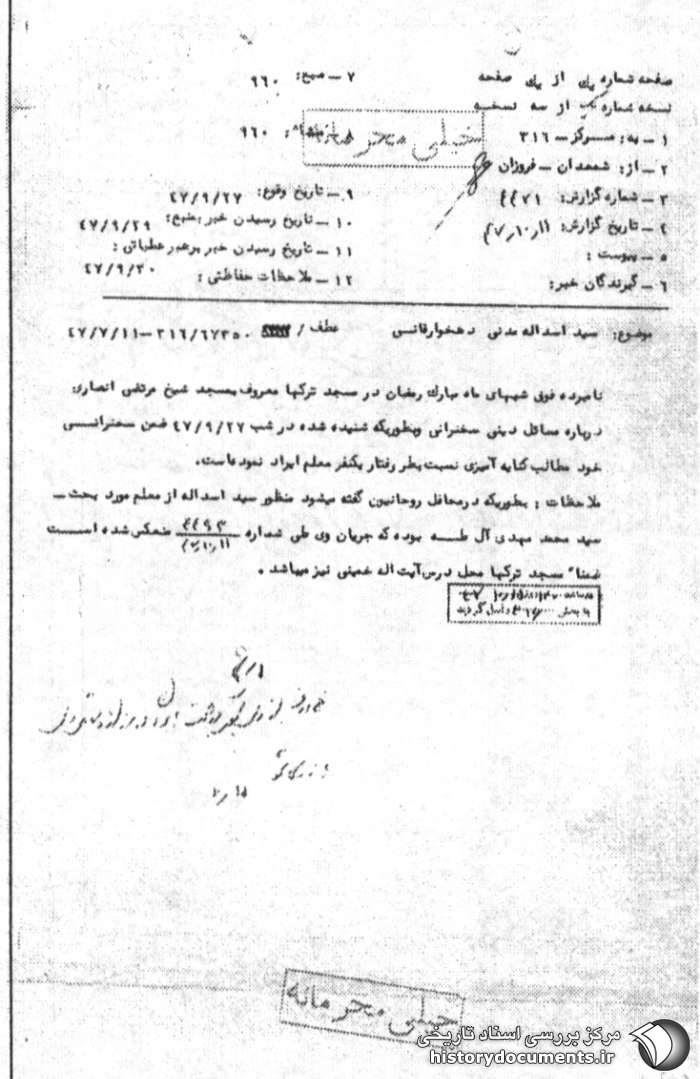 صفحه شماره یک از یک صفحه
۷ – منبع: ۹۶۰
نسخه شماره از سه نسخه
خیلی محرمانه
۱ – به: مرکز – ۳۱۶
۸ – ۹۶۰
۲ – از: شمعدان – فروزان
۳ – شماره گزارش: ۴۴۷۱
۹ – تاریخ وقوع: ۴۷/۹/۲۷
۴ – تاریخ گزارش: ۴۷/۱۰/۱۱
۱۰ – تاریخ رسیدن خبر بمنبع: ۴۷/۹/۲۹
۵ – پیوست :
۱۱ – تاریخ رسیدن خبر برهبر عملیاتی : ۴۷/۹/۳۰
۶ – گیرندگان خبر:
۱۲ – ملاحظات حفاظتی :
موضوع: سید اسداله مدنی دهخوارقانی عطف / ۳۱۶/۶۷۳۵۰–۴۷/۷/۱۱
نامبرده فوق شبهای ماه مبارک رمضان در مسجد ترکها معروف بمسجد شیخ مرتضی انصاری
درباره مسائل دینی سخنرانی وبطوریکه شنیده شده در شب ۴۷/۹/۲۷ ضمن سخنرانی
خود مطالب کنایه آمیزی نسبت بطر رفتار یکنفر معلم ایراد نموده‌است.
ملاحظات : بطوریکه درمحافل روحانیون گفته میشود منظور سید اسداله از معلم مورد بحث –
سید محمد مهدی آل طه بوده که جریان وی طی شماره ۴۴۹۳ منعکس شده است
ضمنا" مسجد ترکها محل درس آیت اله خمینی نیز میباشد .
خیلی محرمانه
مرکز بررسی اسناد تاریخی
historydocuments.ir